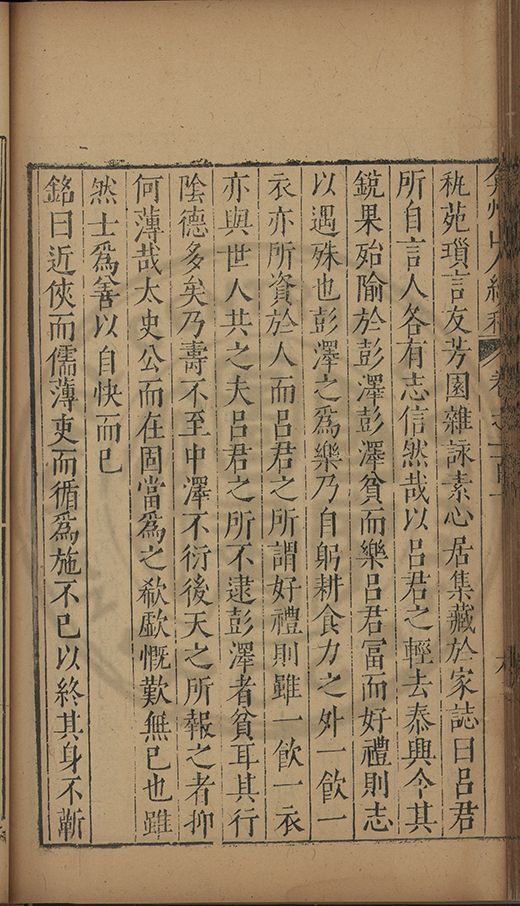 弇州山人續稿 卷之一百十
秇苑瑣言友芳園雜詠素心居集藏於家誌曰呂君
所自言人各有志信然哉以呂君之輕去泰興令其
銳果殆隃於彭澤彭澤貧而樂呂君富而好禮則志
以遇殊也彭澤之爲樂乃自躬耕食力之外一飲一
衣亦所資於人而呂君之所謂好禮則雖一飲一衣
亦與世人共之夫呂君之所不逮彭澤者貧耳其行
陰德多矣乃壽不至中澤不衍後天之所報之者抑
何薄哉太史公而在固當爲之欷歔慨歎無已也雖
然士爲善以自快而已
銘曰近俠而儒薄吏而循爲施不已以終其身不蘄